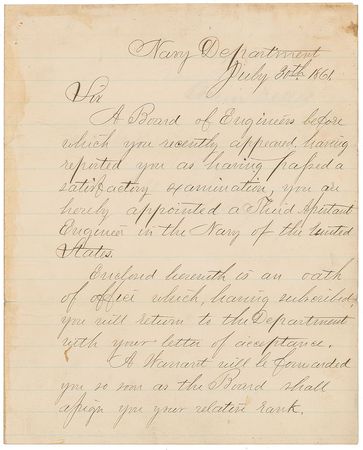 Navy Department
July 30th 1861
Sir
A Board of Engineers before
which you recently appeared, having
reported you as having passed a
satisfactory examination, you are
hereby appointed a Third Assistant
Engineer in the Navy of the United
States.
Enclosed herewith is an oath
of office which, having subscribed,
you will return to the Department
with your letter of acceptance.
A Warrant will be forwarded
you so soon as the Board shall
assign you your relative rank.